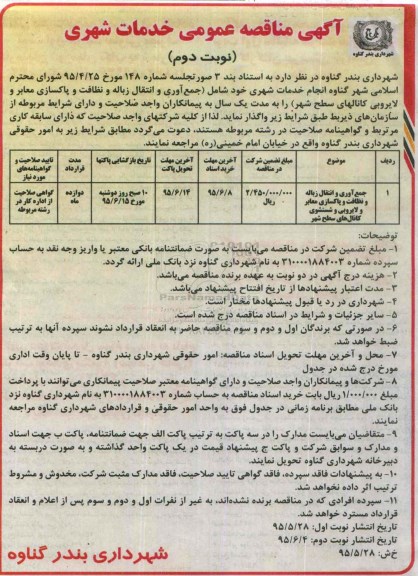 آگهی مناقصه عمومی خدمات شهری
(نوبت دوم)
شهرداری بندر گناوه
شهرداری بندر گناوه در نظر دارد به استناد بند ۳ صورتجلسه شماره ۱۴۸ مورخ ۹۵/۴/۲۵ شورای محترم
اسلامی شهر گناوه انجام خدمات شهری خود شامل (جمع‌آوری و انتقال زباله و نظافت و پاکسازی معابر و
لایروبی کانالهای سطح شهر) را به مدت یک سال به پیمانکاران واجد صلاحیت و دارای شرایط مربوطه از
سازمان‌های ذیربط طبق شرایط زیر واگذار نماید. لذا از کلیه شرکتهای واجد صلاحیت که دارای سابقه کاری
مرتبط و گواهینامه صلاحیت در رشته مربوطه هستند، دعوت می‌گردد مطابق شرایط زیر به امور حقوقی
شهرداری بندر گناوه واقع در خیابان امام خمینی(ره) مراجعه نمایند.
ردیف | موضوع | مبلغ تضمین شرکت در مناقصه | آخرین مهلت خرید اسناد | آخرین مهلت تحویل پاکت | تاریخ بازگشایی پاکتها | مدت قرارداد | تایید صلاحیت و گواهینامه‌های مورد نیاز
۱ | جمع‌آوری و انتقال زباله و نظافت و پاکسازی معابر و لایروبی و شستشوی کانال‌های سطح شهر | ۲/۴۵۰/۰۰۰/۰۰۰ ریال | ۹۵/۶/۸ | ۹۵/۶/۱۴ | ۱۰ صبح روز دوشنبه مورخ ۹۵/۶/۱۵ | دوازده ماه | گواهی صلاحیت از اداره کار در رشته مربوطه
توضیحات:
۱- مبلغ تضمین شرکت در مناقصه می‌بایست به صورت ضمانتنامه بانکی معتبر یا واریز وجه نقد به حساب
سپرده شماره ۳۱۰۰۰۰۱۸۸۴۰۰۳ به نام شهرداری گناوه نزد بانک ملی ارائه گردد.
۲- هزینه درج آگهی در دو نوبت به عهده برنده مناقصه می‌باشد.
۳- مدت اعتبار پیشنهادها از تاریخ افتتاح پیشنهاد می‌باشد.
۴- شهرداری در رد یا قبول پیشنهادها مختار است.
۵- سایر جزئیات و شرایط در اسناد مناقصه درج شده است.
۶- در صورتی که برندگان اول و دوم و سوم مناقصه حاضر به انعقاد قرارداد نشوند سپرده آنها به ترتیب
ضبط خواهد شد.
۷- محل و آخرین مهلت تحویل اسناد مناقصه: امور حقوقی شهرداری گناوه - تا پایان وقت اداری
مورخ درج شده در جدول
۸- شرکت‌ها و پیمانکاران واجد صلاحیت و دارای گواهینامه معتبر صلاحیت پیمانکاری می‌توانند با پرداخت
مبلغ ۱/۰۰۰/۰۰۰ ریال بابت خرید اسناد مناقصه به حساب شماره ۳۱۰۰۰۰۱۸۸۴۰۰۳ به نام شهرداری گناوه نزد
بانک ملی مطابق برنامه زمانی در جدول فوق به واحد امور حقوقی و قراردادهای شهرداری گناوه مراجعه
نمایند.
۹- متقاضیان می‌بایست مدارک را در سه پاکت به ترتیب پاکت الف جهت ضمانتنامه، پاکت ب جهت اسناد
و مدارک و سوابق شرکت و پاکت ج پیشنهاد قیمت در یک پاکت واحد گذاشته و به صورت دربسته به
دبیرخانه شهرداری گناوه تحویل نمایند.
۱۰- به پیشنهادات فاقد سپرده، فاقد گواهی تایید صلاحیت، فاقد مدارک مثبت شرکت، مخدوش و مشروط
ترتیب اثر داده نخواهد شد.
۱۱- سپرده افرادی که در مناقصه برنده نشده‌اند، به غیر از نفرات اول و دوم و سوم پس از اعلام و انعقاد
قرارداد مسترد خواهد شد.
تاریخ انتشار نوبت اول: ۹۵/۵/۲۸
تاریخ انتشار نوبت دوم: ۹۵/۶/۴
خ‌ش: ۹۵/۵/۲۸
شهرداری بندر گناوه